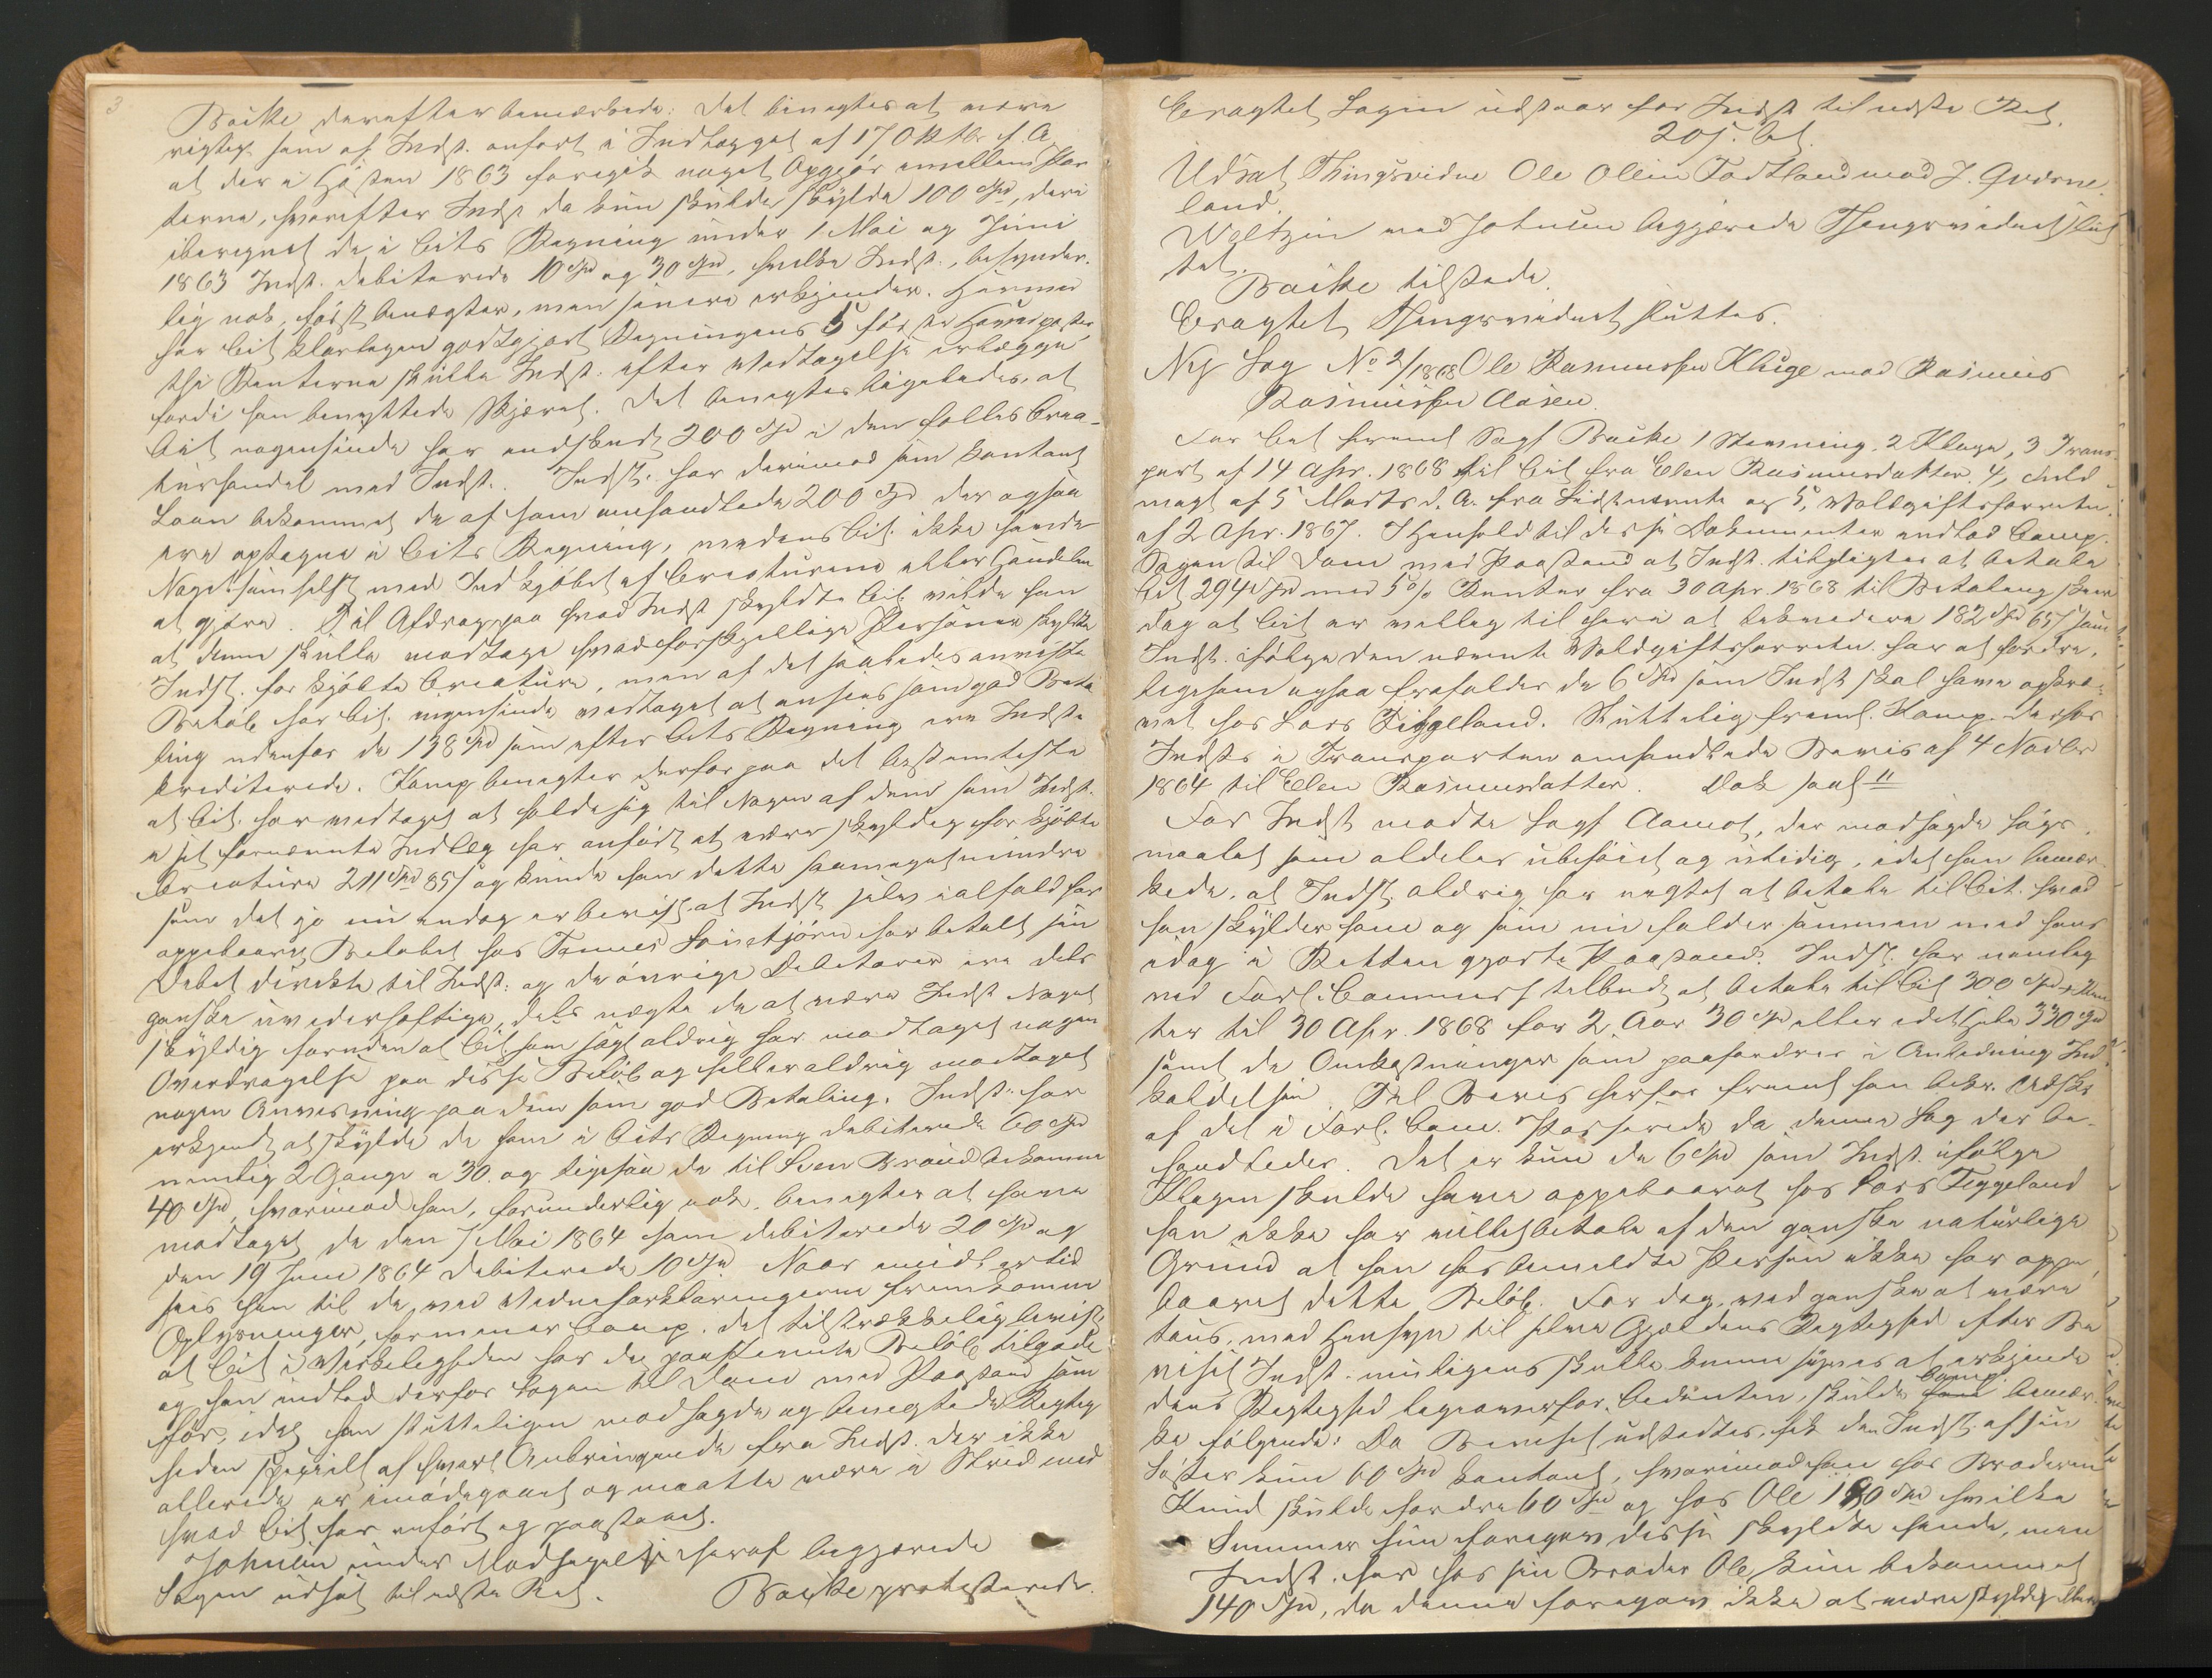 3
Backe derefter bemærkede: Det benegtes at være
rigtigt som af Indst. anført i Indlægget af 17 Oktbr. f. A.
at der i Høsten 1863 foregik noget Opgjør imellem Par
terne, hvorefter Indst da kun skulde skylde 100 Spd, deri
iberegnet de i Cits Regning under 1 Mai og Juni
1863 Indst. debiterede 10 Spd og 30 Spd, hvilke Indst., besynder-
lig nok, først benegter, men senere erkjender. Hermed
har Cit klarligen godtgjort Regningens 5 første Hovedposter
thi Renterne skulle Indst. efter Vedtagelse erlægge
fordi han benyttede Skjæret. Det benegtes ligeledes, at
Cit nogensinde har indskudt 200 Spd i den fælles Crea-
turhandel med Indst. Indst. har derimod som kontant
Laan bekommet de af ham omhandlede 200 Spd der ogsaa
ere optagne i Cits Regning, medens Cit. ikke havde
Noget somhelst med Indkjøbet af Creaturene eller Handelen
at gjøre. Til Afdrag paa hvad Indst skyldte Cit. vilde han
at denne skulle modtage hvad forskjellige Personer skyldte
Indst. for kjøbte Creature, men af det saaledes anviste
Beløb har Cit. ingensinde vedtaget at ansees som god Beta
ling udenfor de 138 Spd som efter Cits Regning ere Indst.
krediterede. Comp. benegter derfor paa det bestemteste
at Cit. har vedtaget at holde sig til Nogen af dem som Indst.
i sit fornævnte Indlæg har anført at være skyldig for kjøbte
Creature 211 Spd 85 s og kunde han dette saameget mindre
som det jo nu endog er bevist at Indst selv ialfald har
oppebaaret Beløbet hos Tønnes som har betalt sin
Debet direkte til Indst. og de øvrige Debitorer ere dels
ganske uvederhæftige, dels negte de at være Indst Noget
skyldig foruden at Cit. som sagt aldrig har modtaget nogen
Overdragelse paa disse Beløb og heller aldrig modtaget
nogen Anvisning paa dem som god Betaling. Indst. har
erkjendt at skylde de ham i Cits Regning debiterede 60 Spd
nemlig 2 Gange a 30. og ligesaa de til Sven Braud bekomne
40 Spd, hvorimod han, forunderlig nok, benegter at have
modtaget de den 7 Mai 1864 ham debiterede 20 Spd og
den 19 Juni 1864 debiterede 10 Spd. Naar imidlertid
sees hen til de ved Vidneforklaringerne fremkomne
Oplysninger, formener Comp. det tilstrækkelig bevist
at Cit i Virkeligheden har det paastevnte Beløb tilgode
og han indlod derfor Sagen til Dom med Paastand som
før, idet han sluttelig modsagde og benegtede Rigtig
heden specielt af hvert Anbringende fra Indst. der ikke
allerede er imødegaaet og maatte være i Strid med
hvad Cit har anført og paastaaet.
Johnsen under Modsigelse heraf begjærede
Sagen udsat til næste Ret. Backe protesterede.
Eragtet Sagen udstaar for Indst til næste Ret.
205. Cit.
Udsat Thingsvidne Ole Olsen Todtland mod J. Gudme-
land.
Weltzin med Johnsen begjærede Thingsvidnet slut
tet.
Backe tilstede.
Eragtet Thingsvidnet sluttes.
Ny Sag No 2/1868 Ole Rasmussen Kluge mod Rasmus
Rasmussen Aasen.
For Cit fremlagde Sagf Backe 1 Stevning, 2 Klage, 3 Trans-
port af 14 Apr. 1868 til Cit fra Elen Rasmusdatter. 4, Fuld-
magt af 5 Marts d. A. fra Sidstnevnte og 5, Voldgiftsforretn.
af 2 Apr. 1867. I Henhold til disse Dokumenter indlod Comp.
Sagen til Dom med Paastand at Indst. tilpligtes at betale
Cit 294 Spd med 5% Renter fra 30 Apr. 1868 til Betaling skeer
dog at Cit er villig til heri at likvidere 182 Spd 65 s som
Indst. ifølge den nævnte Voldgiftsforretn. har at fordre,
ligesom ogsaa frafaldes de 6 Spd som Indst skal have opkræ-
vet hos Lars Figgeland. Sluttelig freml. Komp. det for
Indst. i Transporten omhandlede Bevis af 4 Novbr
1864 til Elen Rasmusdatter. Dok saal
For Indst mødte Sagf Aamot, der modsagde Søgs-
maalet som aldeles ubeføiet og utidig, idet han bemær-
kede, at Indst. aldrig har negtet at betale til Cit. hvad
han skylder ham og som nu falder sammen med hans
idag i Retten gjorte Paastand. Indst. har nemlig
ved Forl. Commis. tilbudt at betale til Cit 300 Spd + Ren
ter til 30 Apr. 1868 for 2 Aar 30 Spd eller i det Hele 330 Spd
samt de Omkostninger som paafordres i Anledning Ind-
kaldelsen. Til Bevis herfor freml han bekr. Udskr
af det i Forl. Com. Passerede da denne Sag der be-
handledes. Det er kun de 6 Spd som Indst. ifølge
Klagen skulde have oppebaaret hos Lars Figgeland
han ikke har villet betale af den ganske naturlige
Grund at han hos bemeldte Person ikke har oppe
baaret dette Beløb. For dog, ved ganske at være
taus, med Hensyn til selve Gjældens Rigtighed efter Be
viset Indst. muligens skulle kunne synes at erkjende
dens Rigtighed Comp. bemær-
ke følgende: Da Beviset udstedtes, fik den Indst. af sin
Søster kun 60 Spd kontant, hvorimod han hos Broderen
Knud skulde fordre 60 Spd og hos Ole 180 Spd hvilke
Summer hun foregav disse skyldte hende, men
Indst. har hos sin Broder Ole kun bekommet
140 Spd, da denne foregav ikke at være skyldig mere